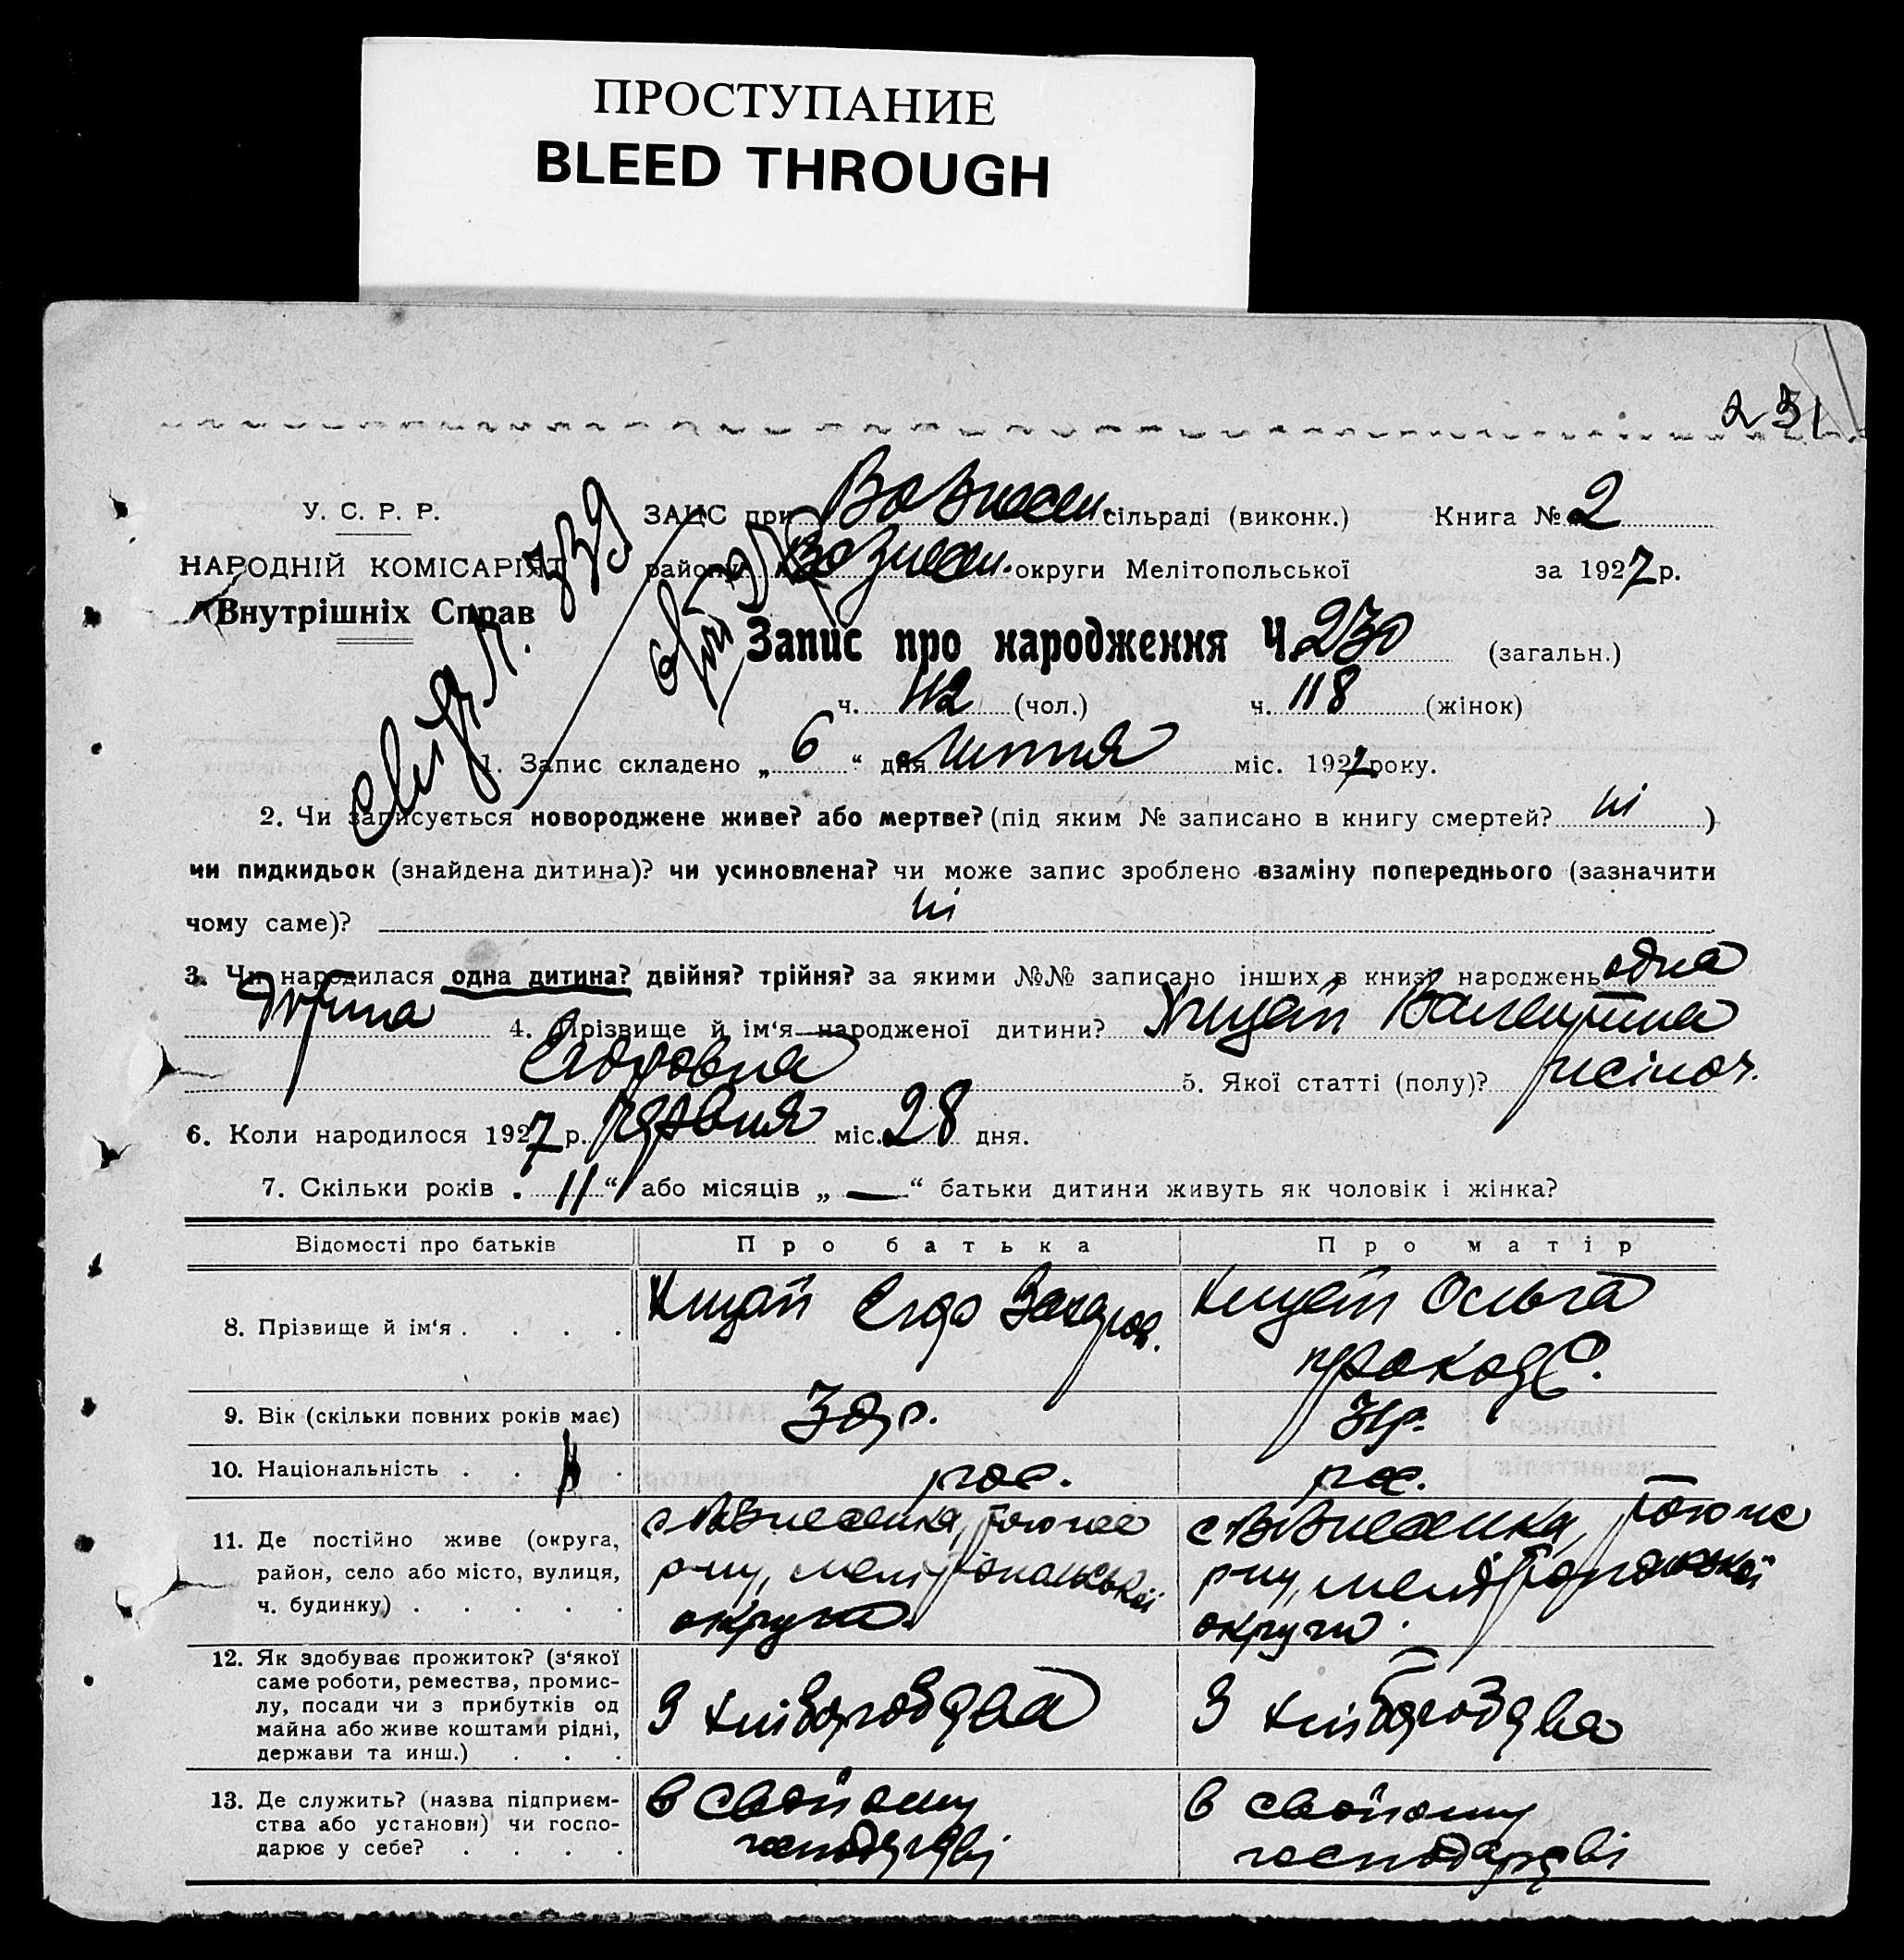 ПРОСТУПАНИЕ
BLEED THROUGH
231
У. С. Р. Р.
НАРОДНІЙ КОМІСАРІЯТ
Внутрішніх Справ
ЗАЦС при Вознесен. сільраді (виконк.) Книга № 2
району Вознесен. округи Мелітопольської за 1927 р.
Запис про народження Ч. 230 (загальн.)
ч. 112 (чол.) ч. 118 (жінок)
1. Запис складено „ 6 “ дня липня міс. 1927 року.
2. Чи записується новороджене живе? або мертве? (під яким № записано в книгу смертей? ні )
чи пидкидьок (знайдена дитина)? чи усиновлена? чи може запис зроблено взаміну попереднього (зазначити
чому саме)? ні
3. Чи народилася одна дитина? двійня? трійня? за якими №№ записано інших в книзі народжень одна
дитина 4. Прізвище й ім‘я народженої дитини? Валентина
Єгоровна 5. Якої статті (полу)? жіноч.
6. Коли народилося 1927 р. червня міс. 28 дня.
7. Скільки років „ 11 “ або місяців „ — “ батьки дитини живуть як чоловік і жінка?
Відомості про батьків Про батька Про матір
8. Прізвище й ім‘я . . . . Захаров. Ольга
9. Вік (скільки повних років має)
10. Національність . . . . рос. рос.
11. Де постійно живе (округа,
район, село або місто, вулиця,
ч. будинку) . . . . .
с Вознесенка,
р-ну, мелітопольської
округи.
с Вознесенка,
р-ну, мелітопольської
округи.
12. Як здобуває прожиток? (з‘якої
саме роботи, ремества, промис-
лу, посади чи з прибутків од
майна або живе коштами рідні,
держави та инш.) . . .
З хліборобства З хліборобства
13. Де служить? (назва підприєм-
ства або установи) чи госпо-
дарює у себе? . . . .
в свойому
господарстві
в свойому
господарстві